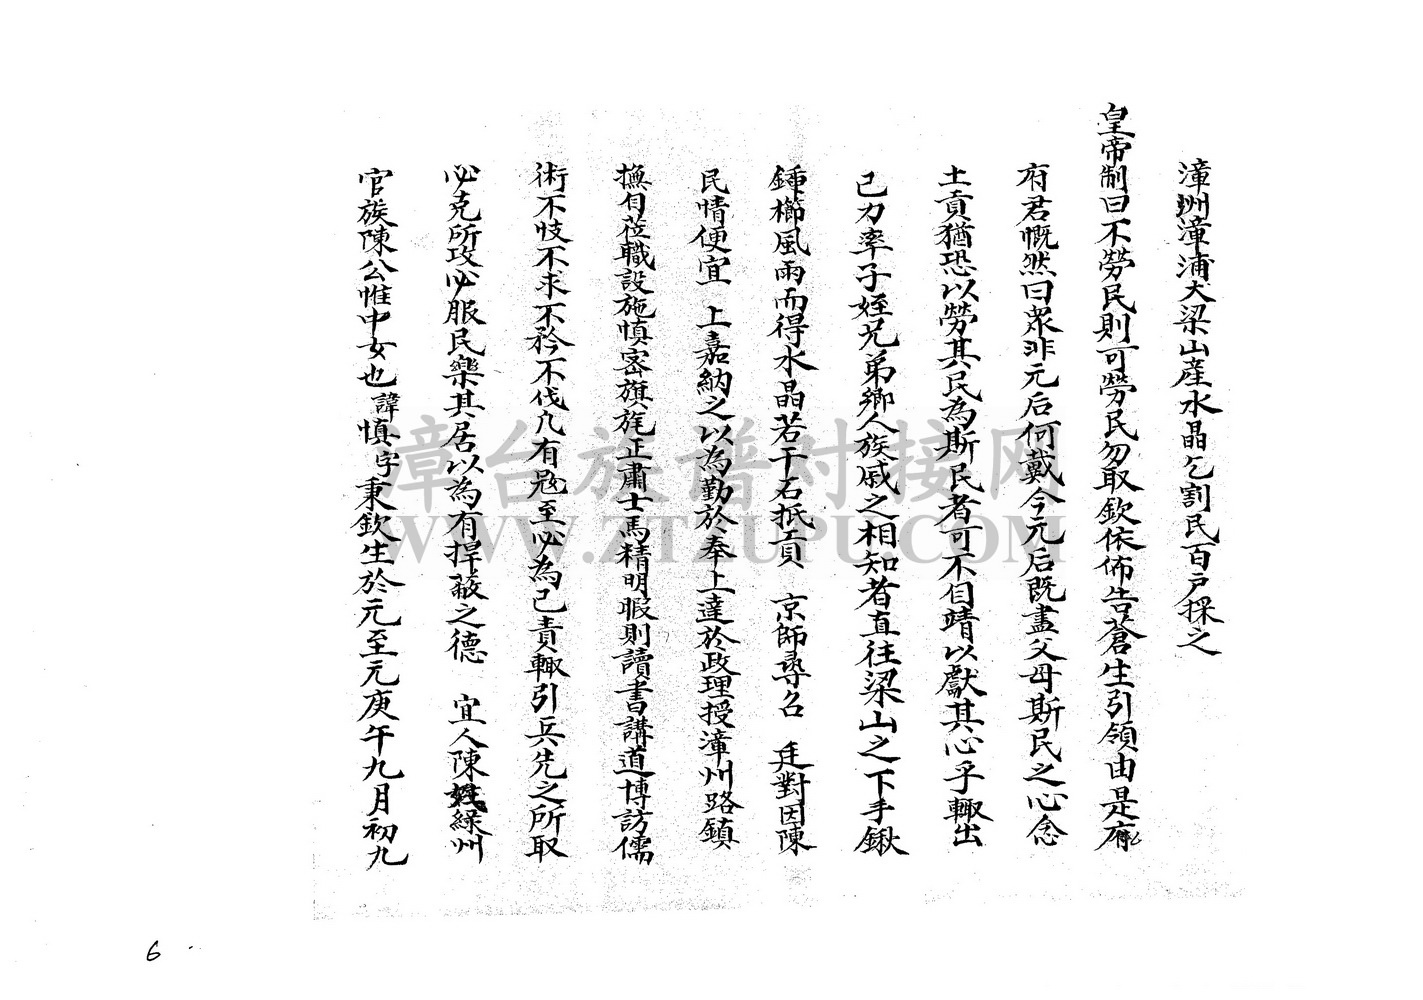 漳州漳浦大梁山産水晶乞割民百戶採之
皇帝制曰不勞民則可勞民勿取欽依佈告蒼生引領由是府
府君慨然曰衆非元后何戴今元后既盡父母斯民之心念
土貢猶恐以勞其民為斯民者可不自靖以獻其心乎輙出
己力率子姪兄弟鄉人族戚之相知者直往梁山之下手鍬
鍤櫛風雨而得水晶若干石抵貢 京師尋召 廷對因陳
民情便宜 上嘉納之以為勤於奉上達於政理授漳州路鎮
撫自蒞職設施慎密旗旄正肅士馬精明暇則讀書講道博訪儒
術不忮不求不矜不伐凡有寇至必為己責輙引兵先之所取
必克所攻必服民樂其居以為有捍蔽之德 宜人陳綠州
官族陳公惟中女也諱慎字秉欽生於元至元庚午九月初九
漳台族谱对接网
WWW.ZTZUPU.COM
6